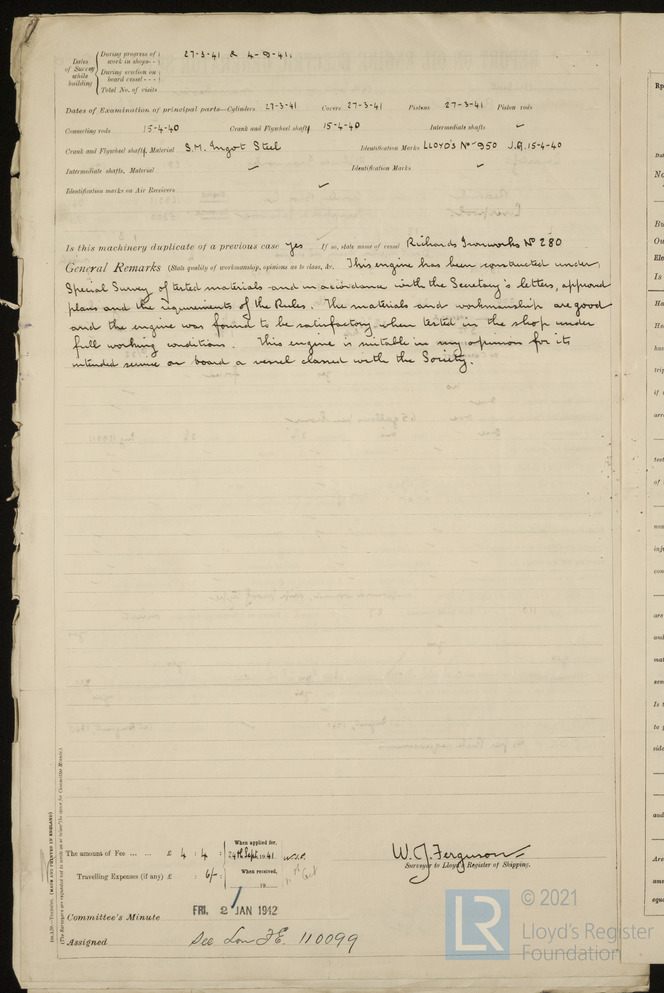 Dates of Survey while building
During progress of work in shops - - 27-3-41 & 4-9-41.
During erection on board vessel - - -
Total No. of visits
Dates of Examination of principal parts—Cylinders 27-3-41 Covers 27-3-41 Pistons 27-3-41 Piston rods
Connecting rods 15-4-40 Crank and Flywheel shafts 15-4-40 Intermediate shafts ✓
Crank and Flywheel shafts, Material S.M. Ingot Steel Identification Marks LLOYD'S No 950 J.A. 15-4-40
Intermediate shafts, Material ✓ Identification Marks ✓
Identification marks on Air Receivers ✓
Is this machinery duplicate of a previous case yes If so, state name of vessel Richards Ironworks No 280
General Remarks (State quality of workmanship, opinions as to class, &c. This engine has been constructed under
Special Survey of tested materials and in accordance with the Secretary's letters, approved
plans and the requirements of the Rules. The materials and workmanship are good
and the engine was found to be satisfactory when tested in the shop under
full working conditions. This engine is suitable in my opinion for its
intended service on board a vessel classed with the Society.
The amount of Fee ... ... £ 4 : 4 : When applied for, 24th Sept. 1941
Travelling Expenses (if any) £ : 6/- : When received, 19
W. J. Ferguson
Surveyor to Lloyd's Register of Shipping.
Committee's Minute FRI. 2 JAN 1942
Assigned See Lon F.E. 110099
© 2021
LR
Lloyd's Register
Foundation